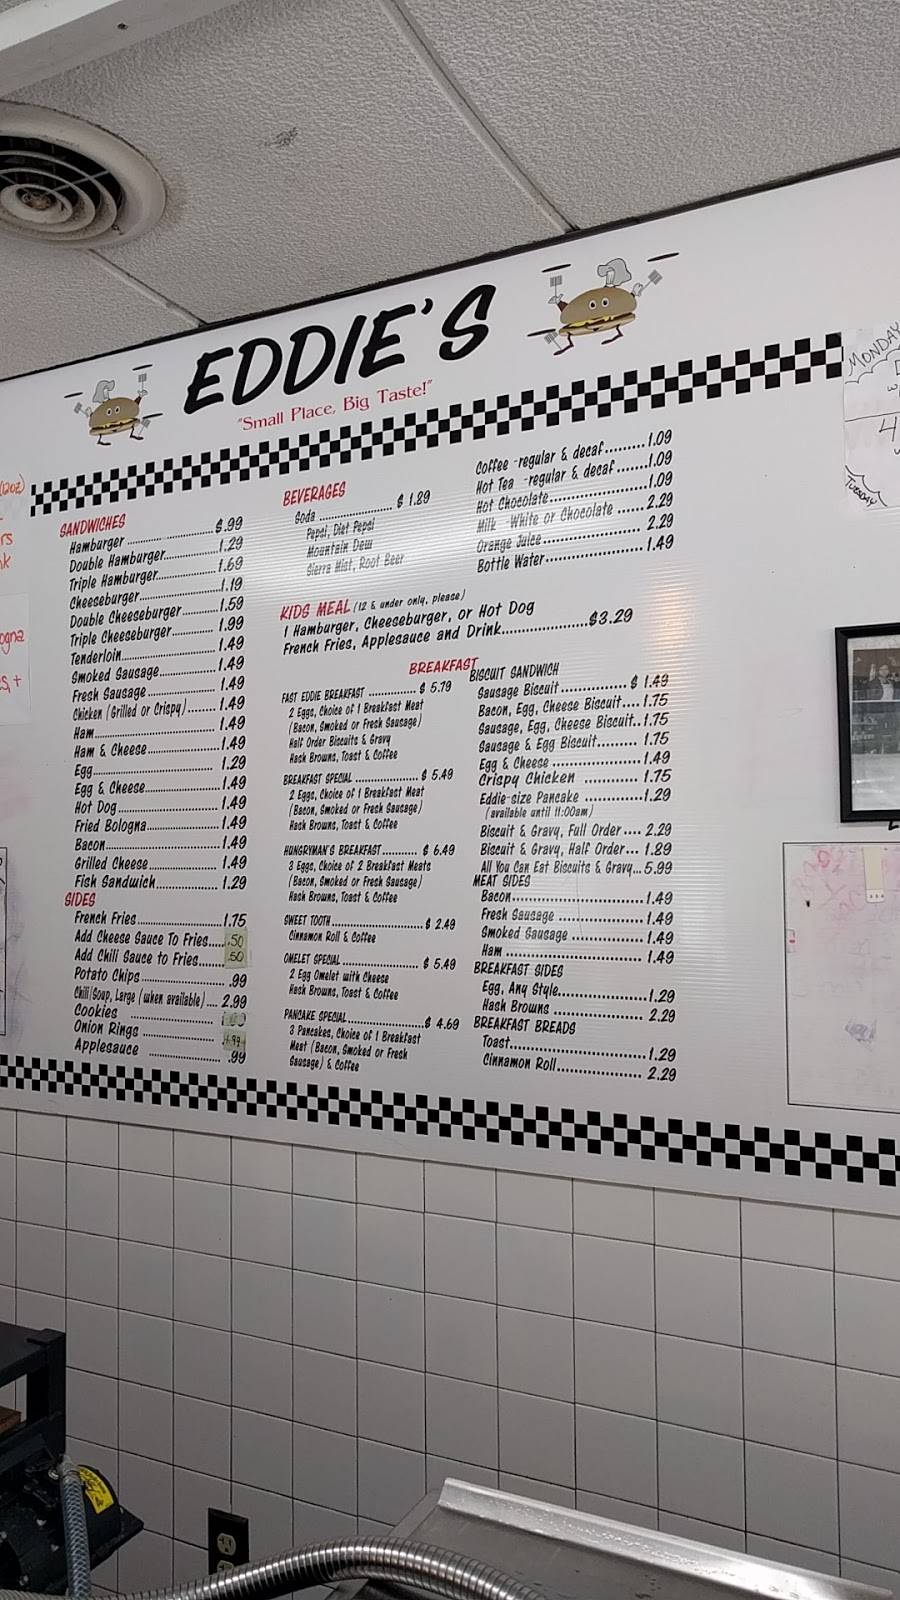 EDDIE'S
"Small Place, Big Taste!"
SANDWICHES
Hamburger ..................... $.99
Double Hamburger............... 1.29
Triple Hamburger............... 1.69
Cheeseburger................... 1.19
Double Cheeseburger............ 1.59
Triple Cheeseburger............ 1.99
Tenderloin..................... 1.49
Smoked Sausage................. 1.49
Fresh Sausage.................. 1.49
Chicken (Grilled or Crispy).... 1.49
Ham............................ 1.49
Ham & Cheese................... 1.49
Egg............................ 1.29
Egg & Cheese................... 1.49
Hot Dog........................ 1.49
Fried Bologna.................. 1.49
Bacon.......................... 1.49
Grilled Cheese................. 1.49
Fish Sandwich.................. 1.29
SIDES
French Fries................... 1.75
Add Cheese Sauce To Fries..... .50
Add Chili Sauce to Fries...... .50
Potato Chips................... .99
Chili/Soup, Large (when available).... 2.99
Cookies .......................
Onion Rings ...................
Applesauce .................... .99
BEVERAGES
Soda ..................... $ 1.29
Pepsi, Diet Pepsi
Mountain Dew
Sierra Mist, Root Beer
Coffee -regular & decaf......... 1.09
Hot Tea -regular & decaf....... 1.09
Hot Chocolate.................. 1.09
Milk - White or Chocolate ...... 2.29
Orange Juice................... 2.29
Bottle Water................... 1.49
KIDS MEAL (12 & under only, please)
1 Hamburger, Cheeseburger, or Hot Dog
French Fries, Applesauce and Drink..................... $3.29
BREAKFAST
FAST EDDIE BREAKFAST .............. $ 5.79
2 Eggs, Choice of 1 Breakfast Meat
(Bacon, Smoked or Fresh Sausage)
Half Order Biscuits & Gravy
Hash Browns, Toast & Coffee
BREAKFAST SPECIAL .................. $ 5.49
2 Eggs, Choice of 1 Breakfast Meat
(Bacon, Smoked or Fresh Sausage)
Hash Browns, Toast & Coffee
HUNGRYMAN'S BREAKFAST.......... $ 6.49
3 Eggs, Choice of 2 Breakfast Meats
(Bacon, Smoked or Fresh Sausage)
Hash Browns, Toast & Coffee
SWEET TOOTH........................ $ 2.49
Cinnamon Roll & Coffee
OMELET SPECIAL..................... $ 5.49
2 Egg Omelet with Cheese
Hash Browns, Toast & Coffee
PANCAKE SPECIAL.................... $ 4.69
3 Pancakes, Choice of 1 Breakfast
Meat (Bacon, Smoked or Fresh
Sausage) & Coffee
BISCUIT SANDWICH
Sausage Biscuit................ $ 1.49
Bacon, Egg, Cheese Biscuit.... 1.75
Sausage, Egg, Cheese Biscuit.. 1.75
Sausage & Egg Biscuit......... 1.75
Egg & Cheese .................. 1.49
Crispy Chicken ............ 1.75
Eddie-size Pancake ............. 1.29
(available until 11:00am)
Biscuit & Gravy, Full Order .... 2.29
Biscuit & Gravy, Half Order... 1.89
All You Can Eat Biscuits & Gravy... 5.99
MEAT SIDES
Bacon.......................... 1.49
Fresh Sausage ................. 1.49
Smoked Sausage ................ 1.49
Ham ........................... 1.49
BREAKFAST SIDES
Egg, Any Style................. 1.29
Hash Browns ................... 2.29
BREAKFAST BREADS
Toast.......................... 1.29
Cinnamon Roll.................. 2.29
MONDAY
TUESDAY